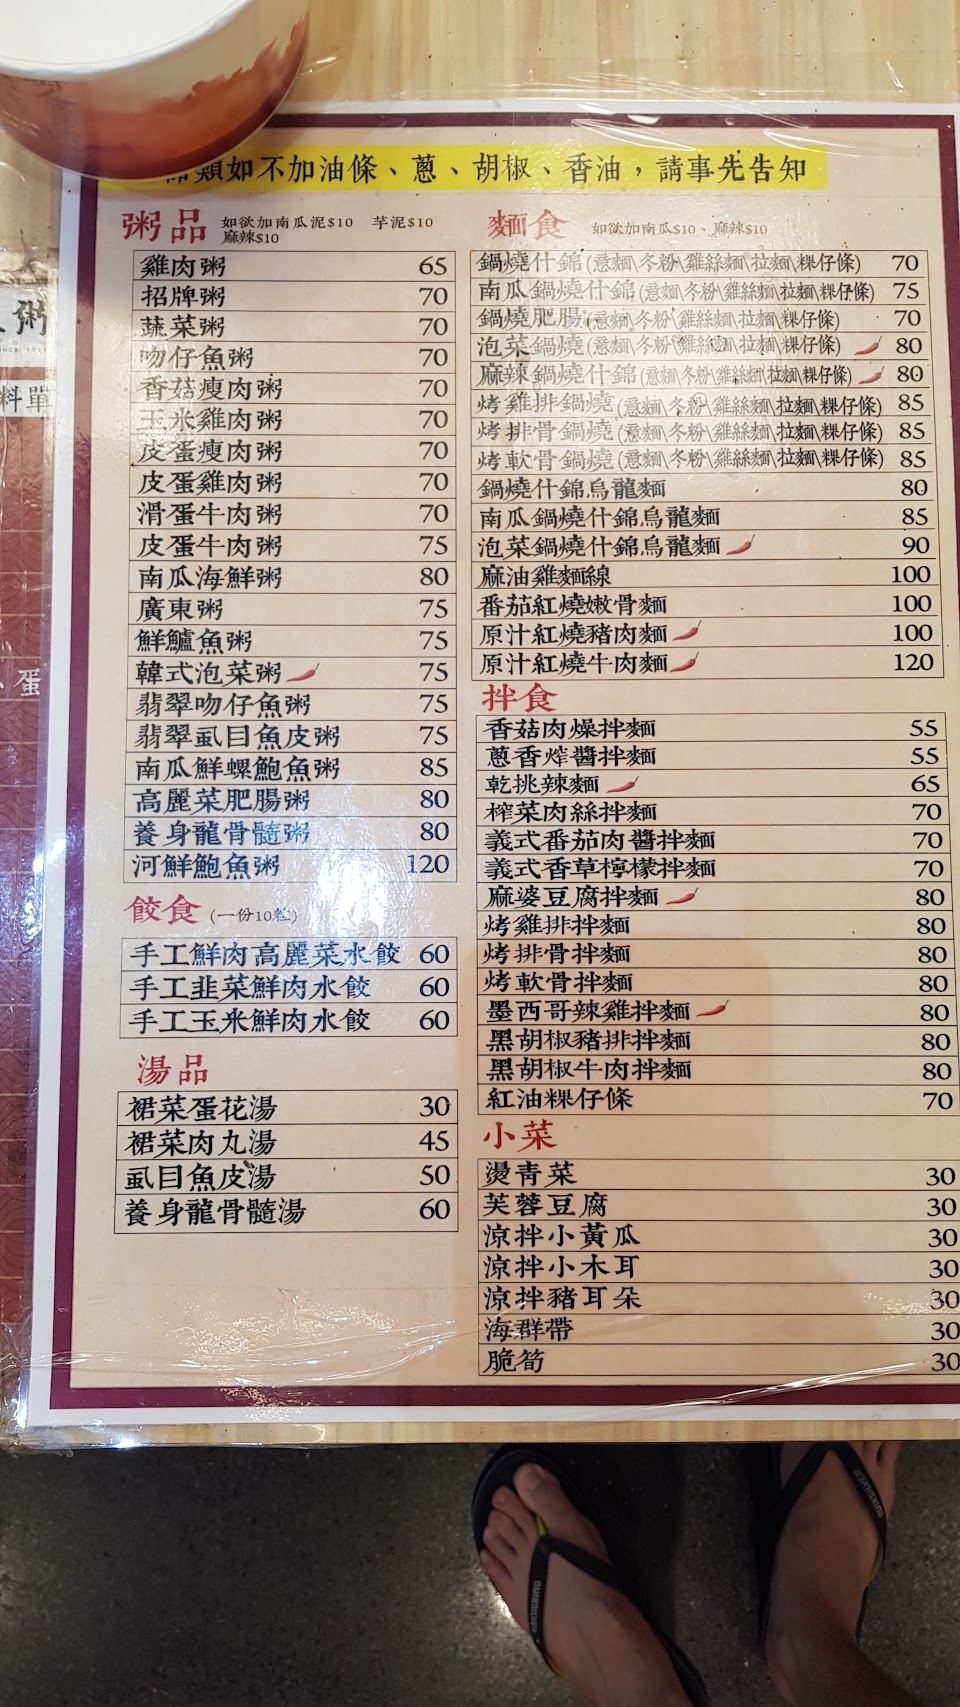 類如不加油條、蔥、胡椒、香油，請事先告知
粥品 如欲加南瓜泥$10 芋泥$10
麻辣$10
雞肉粥 65
招牌粥 70
蔬菜粥 70
吻仔魚粥 70
香菇瘦肉粥 70
玉米雞肉粥 70
皮蛋瘦肉粥 70
皮蛋雞肉粥 70
滑蛋牛肉粥 70
皮蛋牛肉粥 75
南瓜海鮮粥 80
廣東粥 75
鮮鱸魚粥 75
韓式泡菜粥 75
翡翠吻仔魚粥 75
翡翠虱目魚皮粥 75
南瓜鮮螺鮑魚粥 85
高麗菜肥腸粥 80
養身龍骨髓粥 80
河鮮鮑魚粥 120
餃食 (一份10粒)
手工鮮肉高麗菜水餃 60
手工韭菜鮮肉水餃 60
手工玉米鮮肉水餃 60
湯品
裙菜蛋花湯 30
裙菜肉丸湯 45
虱目魚皮湯 50
養身龍骨髓湯 60
麵食 如欲加南瓜$10、麻辣$10
鍋燒什錦(意麵\冬粉\雞絲麵\拉麵\粿仔條) 70
南瓜鍋燒什錦(意麵\冬粉\雞絲麵\拉麵\粿仔條) 75
鍋燒肥腸(意麵\冬粉\雞絲麵\拉麵\粿仔條) 70
泡菜鍋燒(意麵\冬粉\雞絲麵\拉麵\粿仔條) 80
麻辣鍋燒什錦(意麵\冬粉\雞絲麵\拉麵\粿仔條) 80
烤雞排鍋燒(意麵\冬粉\雞絲麵\拉麵\粿仔條) 85
烤排骨鍋燒(意麵\冬粉\雞絲麵\拉麵\粿仔條) 85
烤軟骨鍋燒(意麵\冬粉\雞絲麵\拉麵\粿仔條) 85
鍋燒什錦烏龍麵 80
南瓜鍋燒什錦烏龍麵 85
泡菜鍋燒什錦烏龍麵 90
麻油雞麵線 100
番茄紅燒嫩骨麵 100
原汁紅燒豬肉麵 100
原汁紅燒牛肉麵 120
拌食
香菇肉燥拌麵 55
蔥香炸醬拌麵 55
乾挑辣麵 65
榨菜肉絲拌麵 70
義式番茄肉醬拌麵 70
義式香草檸檬拌麵 70
麻婆豆腐拌麵 80
烤雞排拌麵 80
烤排骨拌麵 80
烤軟骨拌麵 80
墨西哥辣雞拌麵 80
黑胡椒豬排拌麵 80
黑胡椒牛肉拌麵 80
紅油粿仔條 70
小菜
燙青菜 30
芙蓉豆腐 30
涼拌小黃瓜 30
涼拌小木耳 30
涼拌豬耳朵 30
海群帶 30
脆筍 30
粥
料單
蛋
QUIKSILVER
QUIKSILVER